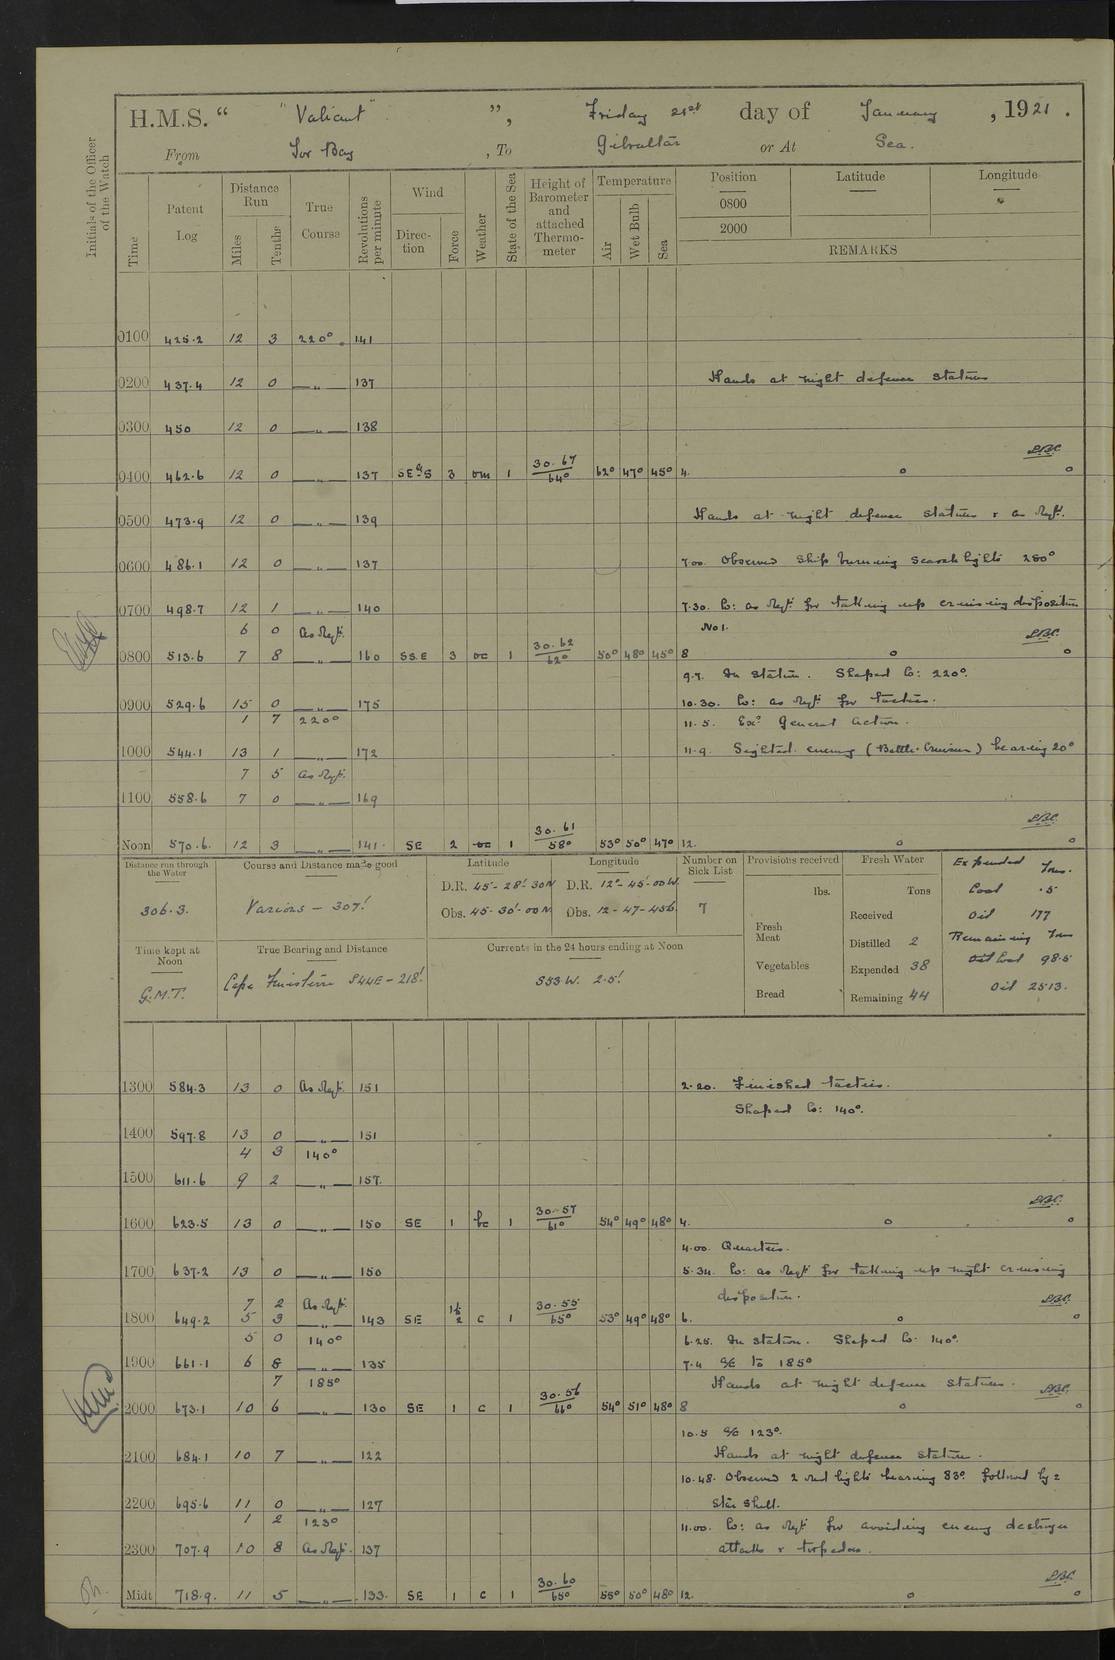 H.M.S. “ "Valiant" ”, Friday 21st day of January, 1921.
From Tor Bay, To Gibraltar or At Sea.
Initials of the Officer of the Watch
Time Patent Log Distance Run Miles Tenths True Course Revolutions per minute Wind Direction Force Weather State of the Sea Height of Barometer and attached Thermometer Temperature Air Wet Bulb Sea Position Latitude Longitude
0800
2000
REMARKS
0100 425.2 12 3 220° 141
0200 437.4 12 0 —„— 137 Hands at night defence stations
0300 450 12 0 —„— 138
0400 462.6 12 0 —„— 137 SE&S 3 om 1 30.67 64° 62° 47° 45° 4.
0500 473.9 12 0 —„— 139 Hands at night defence stations & as Reqt.
0600 486.1 12 0 —„— 137 7.00. Observed ship burning searchlights 280°
0700 498.7 12 1 —„— 140 7.30. Co: as Reqt. for taking up cruising disposition
6 0 As Reqt. No 1.
0800 513.6 7 8 —„— 160 SSE 3 oc 1 30.62 62° 50° 48° 45° 8
9.7. In station. Shaped Co: 220°.
0900 529.6 15 0 —„— 175 10.30. Co: as Reqt. for tactics.
1 7 220° 11.5. Exd General action.
1000 544.1 13 1 —„— 172 11.9. Sighted enemy (Battle-Cruisers) bearing 20°
7 5 As Reqt.
1100 558.6 7 0 —„— 169
Noon 570.6. 12 3 —„— 141. SE 2 oc 1 30.61 58° 53° 50° 47° 12.
Distance run through the Water Course and Distance made good Latitude Longitude Number on Sick List Provisions received Fresh Water Expended Tons.
306.3. Various – 307! D.R. 45-28!30N D.R. 12°-45'-00W. lbs. Tons Coal .5
Obs. 45-30'-00N Obs. 12-47-45W. 7 Fresh Meat Received Oil 177
Time kept at Noon True Bearing and Distance Currents in the 24 hours ending at Noon Distilled 2 Remaining Tons
G.M.T. Cape Finisterre S44E – 218! S53W. 2.5! Vegetables Expended 38 Coal 98.5
Bread Remaining 44 Oil 2513.
1300 584.3 13 0 As Reqt. 151 2.20. Finished tactics.
Shaped Co: 140°.
1400 597.8 13 0 —„— 151
4 3 140°
1500 611.6 9 2 —„— 157.
1600 623.5 13 0 —„— 150 SE 1 bc 1 30.57 61° 54° 49° 48° 4.
4.00. Quarters.
1700 637.2 13 0 —„— 150 5.34. Co: as Reqt for taking up night cruising
7 2 As Reqt. disposition.
1800 649.2 5 3 —„— 143 SE 1/2 c 1 30.55 65° 53° 49° 48° 6.
5 0 140° 6.25. In station. Shaped Co. 140°.
1900 661.1 6 8 —„— 135 7.4 a/c to 185°
7 185° Hands at night defence stations.
2000 673.1 10 6 —„— 130 SE 1 c 1 30.56 66° 54° 51° 48° 8
10.5 a/c 123°.
2100 684.1 10 7 —„— 122 Hands at night defence stations.
10.48. Observed 2 red lights bearing 83°. followed by 2
2200 695.6 11 0 —„— 127 Star Shell.
1 2 123° 11.00. Co: as Reqt for avoiding enemy destroyer
2300 707.9 10 8 As Reqt. 137 attacks & torpedoes.
Midt 718.9. 11 5 —„— 133. SE 1 c 1 30.60 65° 55° 50° 48° 12.